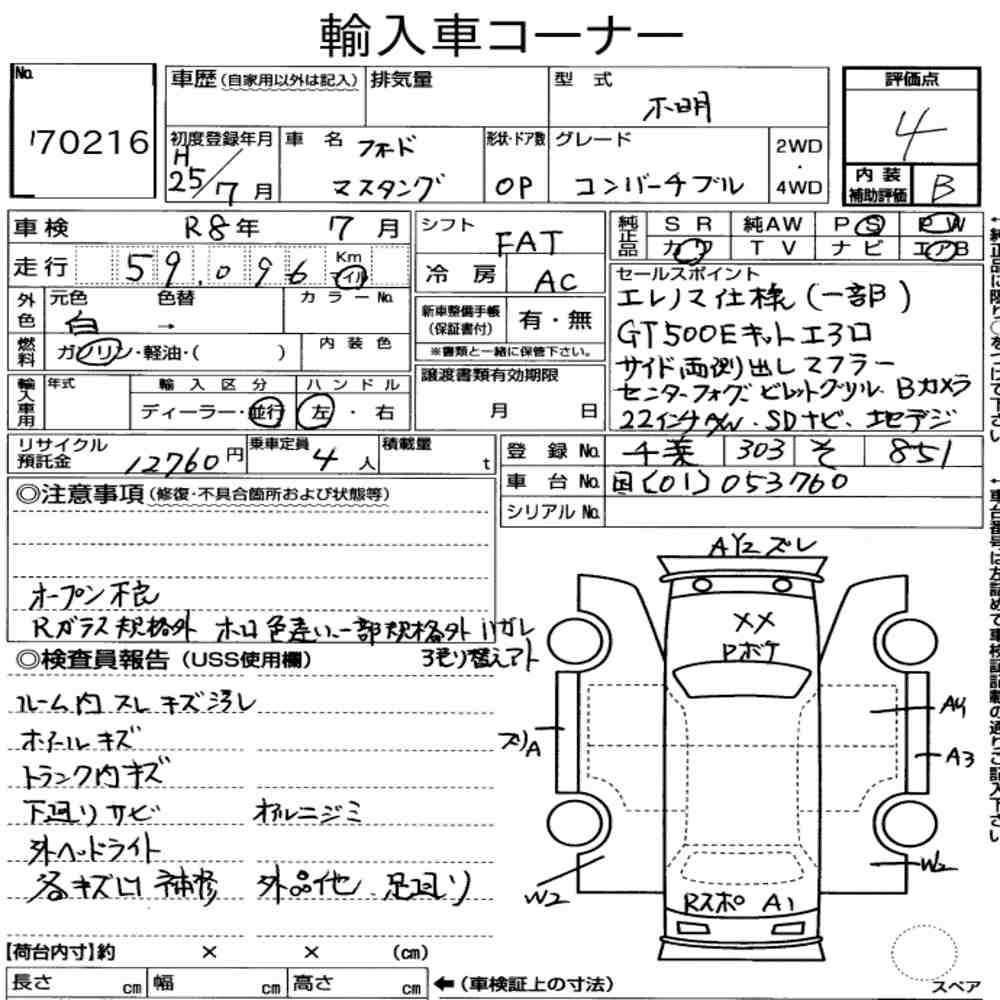 輸入車コーナー
No. 70216
車歴(自家用以外は記入) 排気量 型式 不明
初度登録年月 H25/7月 車名 フォード マスタング 形状・ドア数 OP グレード コンバーチブル 2WD・4WD
評価点 4
内装補助評価 B
車検 R8年 7月
走行 59,096 Km マイル
シフト FAT
冷房 AC
純正品 SR 純AW PS PW
カワ TV ナビ エアB
外色 元色 白 色替 → カラーNo.
燃料 ガソリン・軽油・( ) 内装色
新車整備手帳(保証書付) 有・無
※書類と一緒に保管下さい。
輸入車用 年式 輸入区分 ディーラー・並行 ハンドル 左・右
譲渡書類有効期限 月 日
セールスポイント
エレノマ仕様(一部)
GT500Eキットエアロ
サイド両側出しマフラー
センターフォグ ビレットグリル Bカメラ
22インチAW・SDナビ・地デジ
リサイクル預託金 12760円 乗車定員 4人 積載量 t
登録No. 千葉 303 そ 851
車台No. 国(01)053760
シリアルNo.
◎注意事項(修復・不具合箇所および状態等)
オープン不良
Rガラス規格外 ホロ色違い、一部規格外 ハガレ
ろ塗り替えアト
◎検査員報告(USS使用欄)
ルーム内スレキズ汚レ
ホイールキズ
トランク内キズ
下廻りサビ オイルニジミ
外ヘッドライト
各キズ凹補修 外品他 足廻り
AY2ズレ
XX
Pボケ
ズリA
A4
A3
W2
W2
Rスポ A1
【荷台内寸】約 × × (cm)
長さ cm 幅 cm 高さ cm ←(車検証上の寸法)
スペア
←純正品は限り○をつけて下さい
←車台番号は左詰めで車検証記載の通りご記入下さい